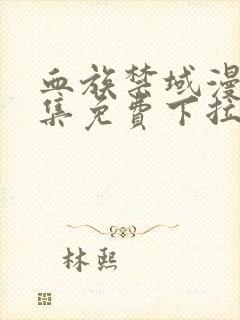 血族禁域漫
集免費下拉
林熙